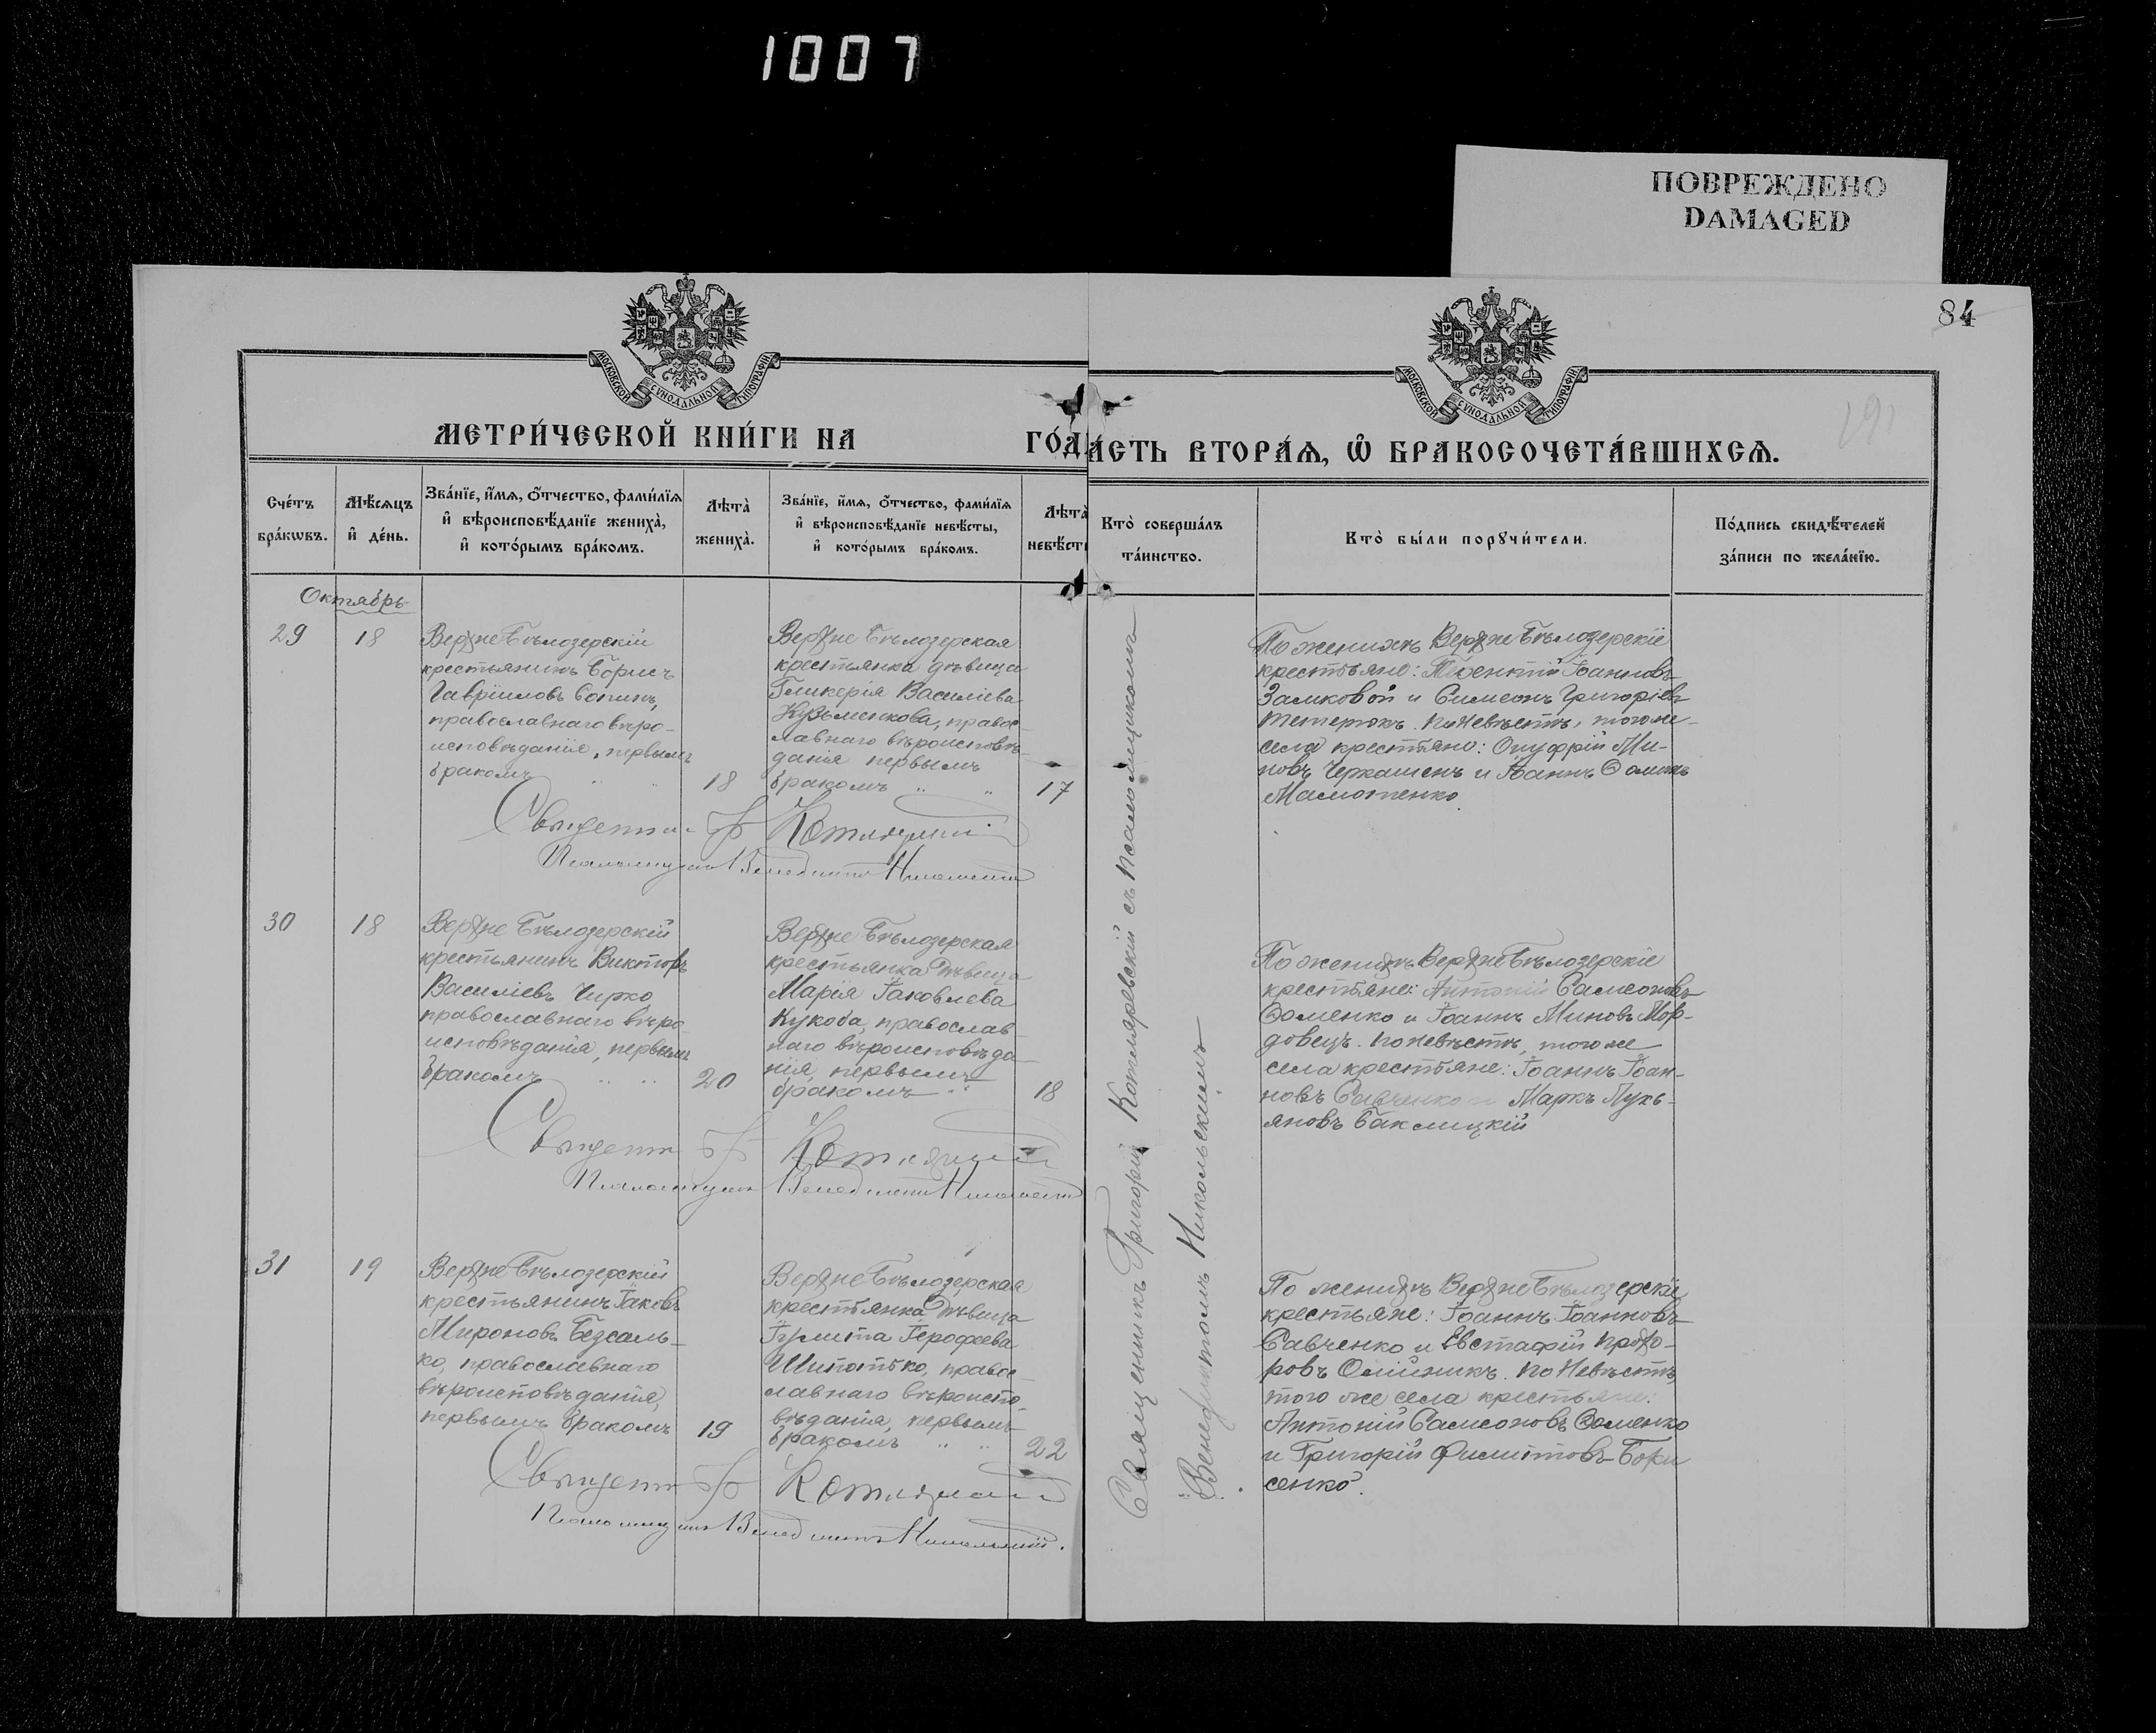 1007
ПОВРЕЖДЕНО
DAMAGED
84
191
МОСКОВСКОЙ СУНОДАЛЬНОЙ ТИПОГРАФІИ
МОСКОВСКОЙ СУНОДАЛЬНОЙ ТИПОГРАФІИ
МЕТРИ́ЧЕСКОЙ КНИ́ГИ НА ГО́Д
А́СТЬ ВТОРА́Ѧ, Ѽ БРАКОСОЧЕТА́ВШИХСѦ.
Сче́тъ бра́кѡвъ.
Мѣ́сѧцъ и҆ де́нь.
Зва́нїе, и҆́мѧ, ѻ҆́тчество, фами́лїѧ и҆ вѣроисповѣ́данїе жениха̀, и҆ кото́рымъ бра́комъ.
Лѣта̀ жениха̀.
Зва́нїе, и҆́мѧ, ѻ҆́тчество, фами́лїѧ и҆ вѣроисповѣ́данїе невѣ́сты, и҆ кото́рымъ бра́комъ.
Лѣта̀ невѣ́ст
Кто̀ соверша́лъ та́инство.
Кто̀ бы́ли порꙋчи́тели.
По́дпись свидѣ́телей за́писи по жела́нїю.
Октябрь
29
18
Верхне Бѣлозерскій
крестьянинъ Борисъ
Гавріиловъ Сопинъ,
православнаго вѣро-
исповѣданія, первымъ
бракомъ " "
18
Верхне Бѣлозерская
крестьянка дѣвица
Гликерія Василіева
Кузьменкова, правос-
лавнаго вѣроисповѣ-
данія первымъ
бракомъ " "
17
По женихѣ Верхне Бѣлозерскіе
крестьяне: Іоанновъ
Замковой и Симеонъ Григоріевъ
Тетерюкъ. По невѣстѣ, того же
села крестьяне: Онуфрій Ми-
новъ Черкашенъ и Іоаннъ Ѳоминъ
Мамотенко.
Псаломщикъ Венедиктъ Никольскій
30
18
Верхне Бѣлозерскій
крестьянинъ Викторъ
Василіевъ Чирко,
православнаго вѣро-
исповѣданія, первымъ
бракомъ " "
20
Верхне Бѣлозерская
крестьянка Дѣвица
Марія Іаковлева
Кукоба, православ-
наго вѣроисповѣда-
нія, первымъ
бракомъ "
18
По женихѣ Верхне Бѣлозерскіе
крестьяне: Антоній Самсоновъ
Ѳоменко и Іоаннъ Миновъ Мор-
довецъ. По невѣстѣ, того же
села крестьяне: Іоаннъ Іоан-
новъ Савченко и Маркъ Лукь-
яновъ Баклицкій
Псаломщикъ Венедиктъ Никольскій
31
19
Верхне Бѣлозерскій
крестьянинъ Іаковъ
Мироновъ Безсаль-
ко, православнаго
вѣроисповѣданія,
первымъ бракомъ
19
Верхне Бѣлозерская
крестьянка Дѣвица
Іулита Іерофеева
Шипотько, правос-
лавнаго вѣроиспо-
вѣданія, первымъ
бракомъ " "
22
По женихѣ Верхне Бѣлозерскіе
крестьяне: Іоаннъ Іоанновъ
Савченко и Евстафій Прохо-
ровъ Олійникъ. По невѣстѣ,
того же села крестьяне:
Антоній Самсоновъ Ѳоменко
и Григорій Филиповъ Бори
сенко.
Псаломщикъ Венедиктъ Никольскій.
Священникъ Григорій Котляревскій съ псаломщикомъ
Венедиктомъ Никольскимъ